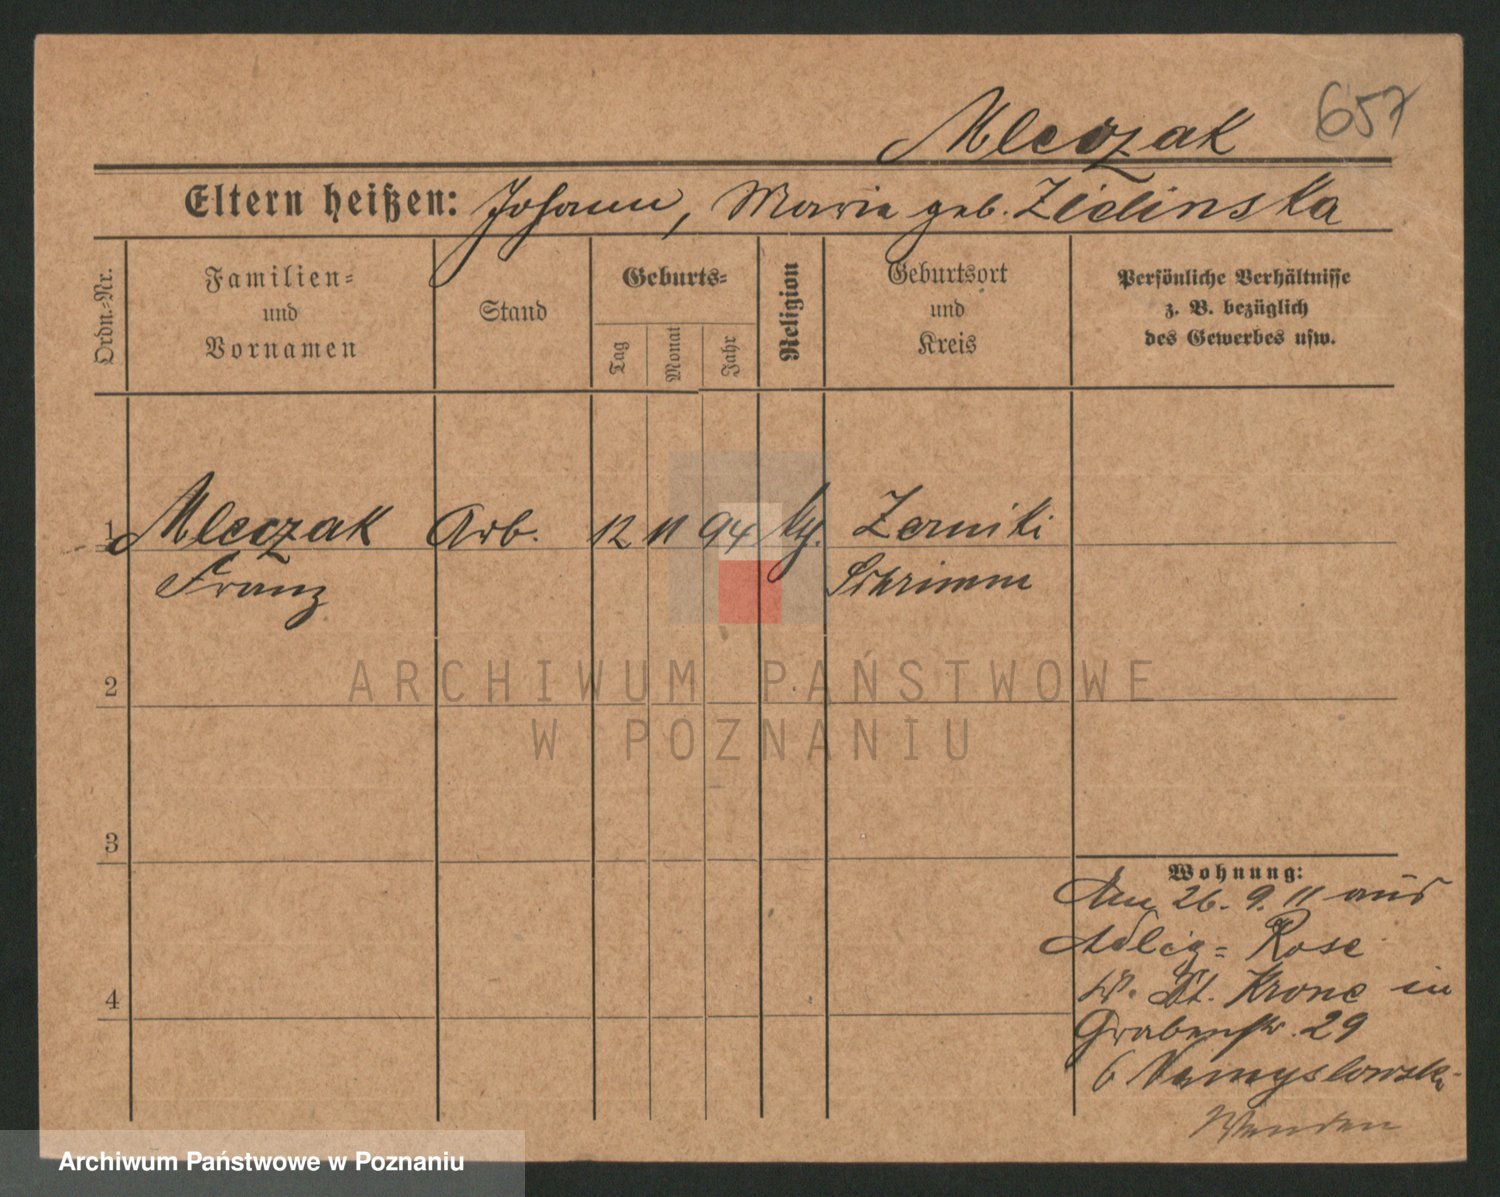 657
Mleczak
Eltern heißen: Johann, Maria geb. Zielinska
Ordn.-Nr.
Familien-
und
Vornamen
Stand
Geburts-
Tag
Monat
Jahr
Religion
Geburtsort
und
Kreis
Persönliche Verhältnisse
z. B. bezüglich
des Gewerbes usw.
1 Mleczak Arb. 12 11 94 kth. Zerniki
Franz Schrimm
2
3
4
Wohnung:
Am 26. 9. 11 aus
Adlig= Rose
Kr. Dt. Krone in
Grabenstr. 29
b Namyslowski
Wenden
ARCHIWUM PAŃSTWOWE
W POZNANIU
Archiwum Państwowe w Poznaniu